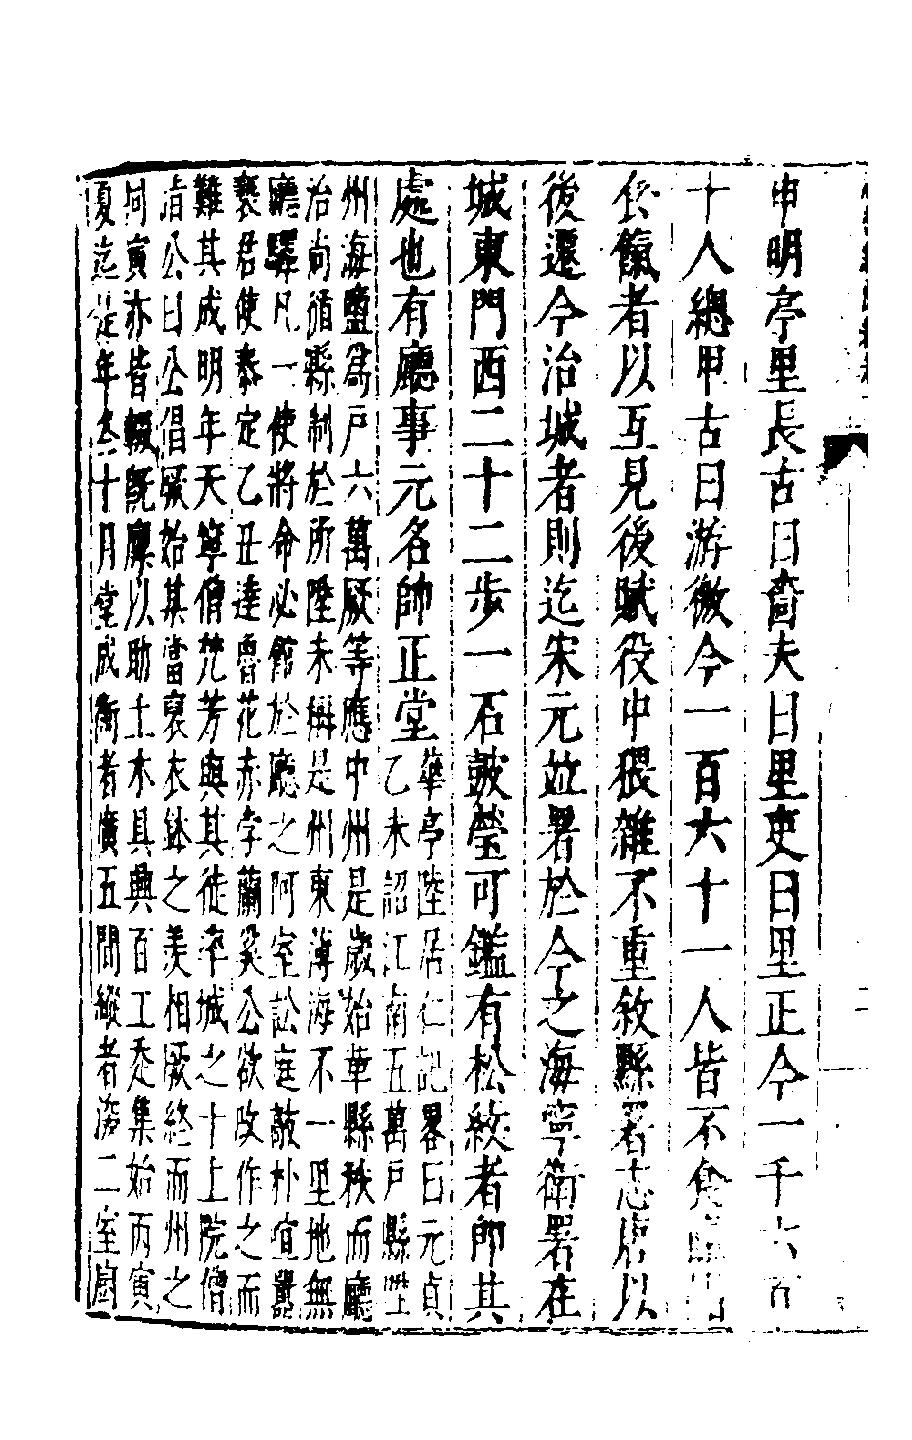 申明亭里長古曰嗇夫曰里吏曰里正今一千六百
十人總甲古曰游徼今一百六十一人皆不食
食餼者以互見後賦役中猥雜不重敘縣署志唐以
後遷今治城者則迄宋元並署於今之海寧衛署在
城東門西二十二步一石皷瑩可鑑有松紋者卽其
處也有廳事元名帥正堂
華亭陸居仁記畧曰元貞
乙未詔江南五萬戶縣陞
州海鹽爲戶六萬厥等應中州是歲始革縣秩而廳
治尚循縣制於所陞未稱是州東薄海不一里地無
廳驛凡一使將命必館於廳之阿室訟庭敲朴宜囂
褻君使泰定乙丑達魯花赤孛蘭奚公欲改作之而
難其成明年天寧僧梵芳與其徒率城之十上院僧
請公曰公倡厥始其當裒衣鉢之羡相厥終而州之
同寅亦皆輟既廩以助土木具興百工丞集始丙寅
夏迄是年冬十月堂成衡者廣五間縱者深二室廚